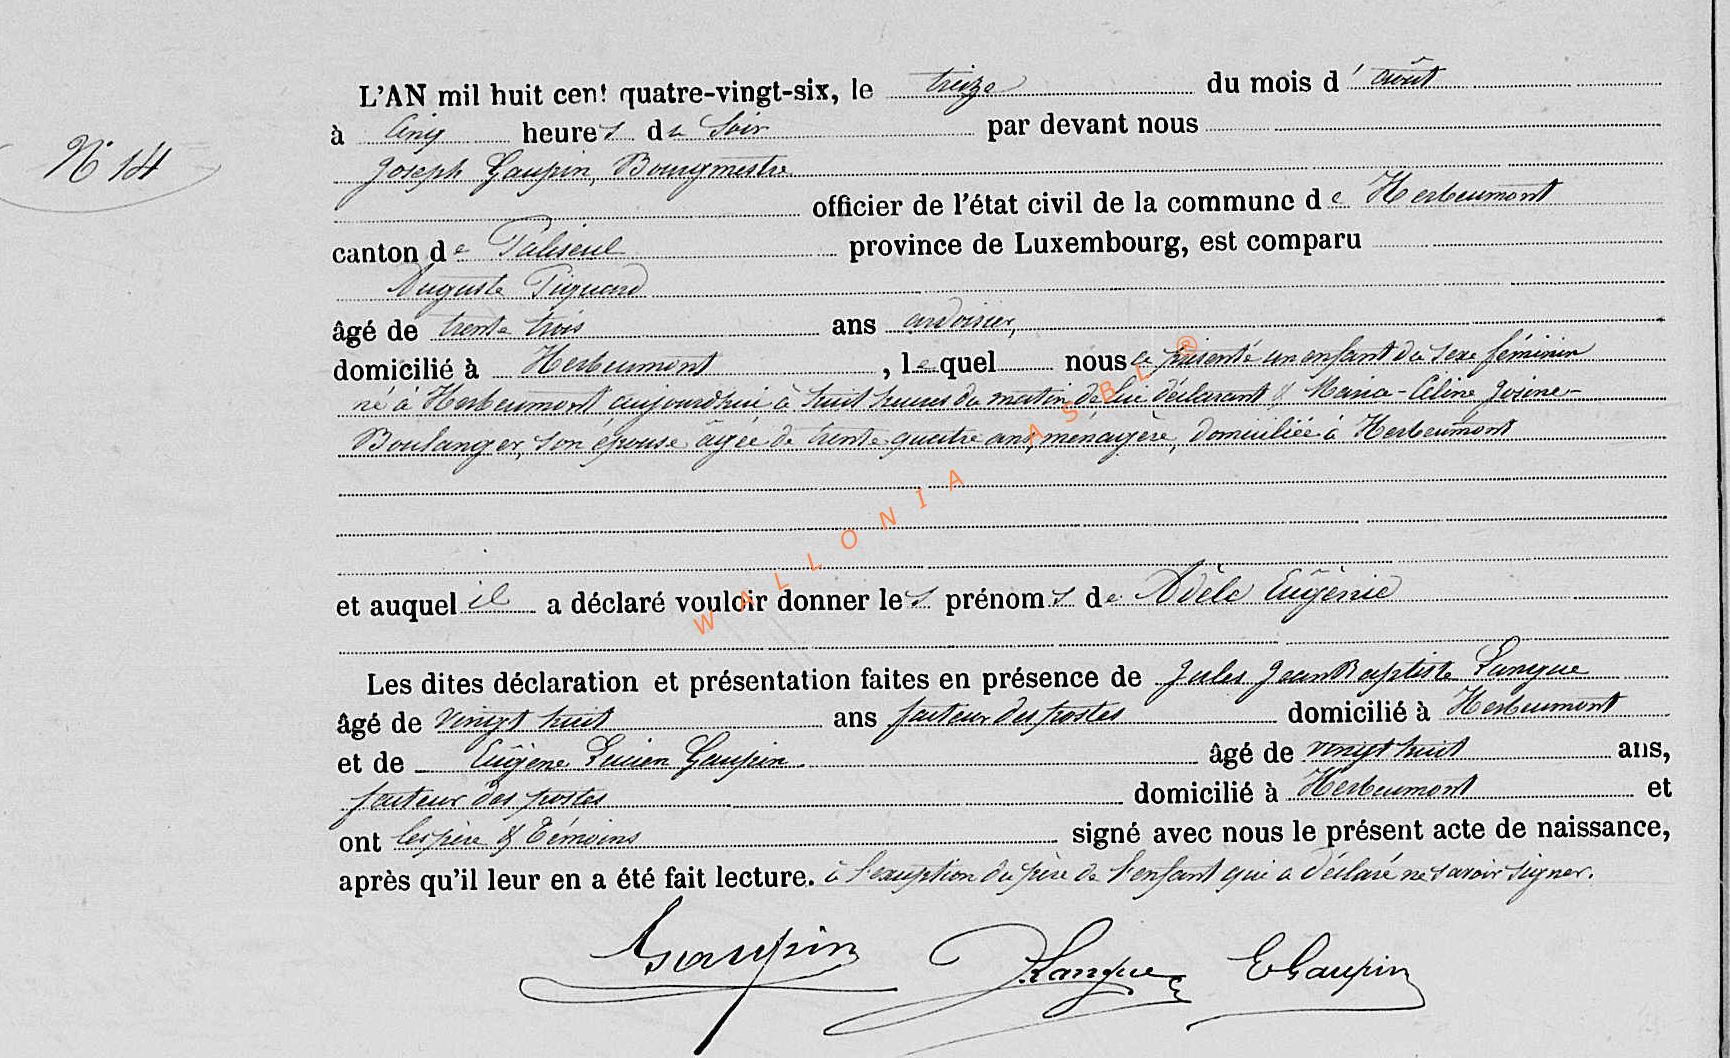 L'AN mil huit cent quatre-vingt-six, le treize du mois d' août
N° 14
à cinq heures du soir par devant nous
Joseph Gaupin, Bourgmestre
officier de l'état civil de la commune de Herbeumont
canton de Paliseul province de Luxembourg, est comparu
Auguste Piquard
âgé de trente trois ans ardoisier,
domicilié à Herbeumont, lequel nous a présenté un enfant du sexe féminin
né à Herbeumont aujourd'hui à huit heures du matin de lui déclarant & Maria-Céline Josine
Boulanger, son épouse âgée de trente quatre ans, ménagère, domiciliée à Herbeumont
et auquel il a déclaré vouloir donner les prénoms de Adèle Eugénie
Les dites déclaration et présentation faites en présence de Jules Jean Baptiste Langue
âgé de vingt huit ans facteur des postes domicilié à Herbeumont
et de Eugène Lucien Gaupin âgé de vingt huit ans,
facteur des postes domicilié à Herbeumont et
ont les père & témoins signé avec nous le présent acte de naissance,
après qu'il leur en a été fait lecture. à l'exception du père de l'enfant qui a déclaré ne savoir signer.
Gaupin J. Langue E Gaupin
WALLONIA ASBL ®